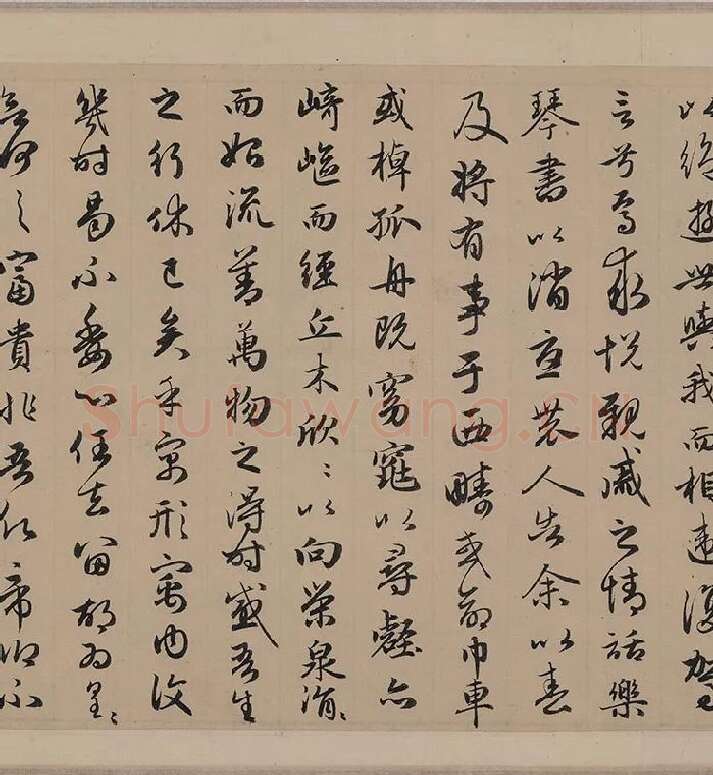 以絶遊世與我而相違復駕
言兮焉求悅親戚之情話樂
琴書以消憂農人告余以春
及將有事于西疇或命巾車
或棹孤舟既窈窕以尋壑亦
崎嶇而經丘木欣〻以向榮泉涓〻
而始流善萬物之得時感吾生
之行休已矣乎寓形寓内復
幾時曷不委心任去留胡為遑〻
何之富貴非吾願帝鄉不
Shufawang.CN